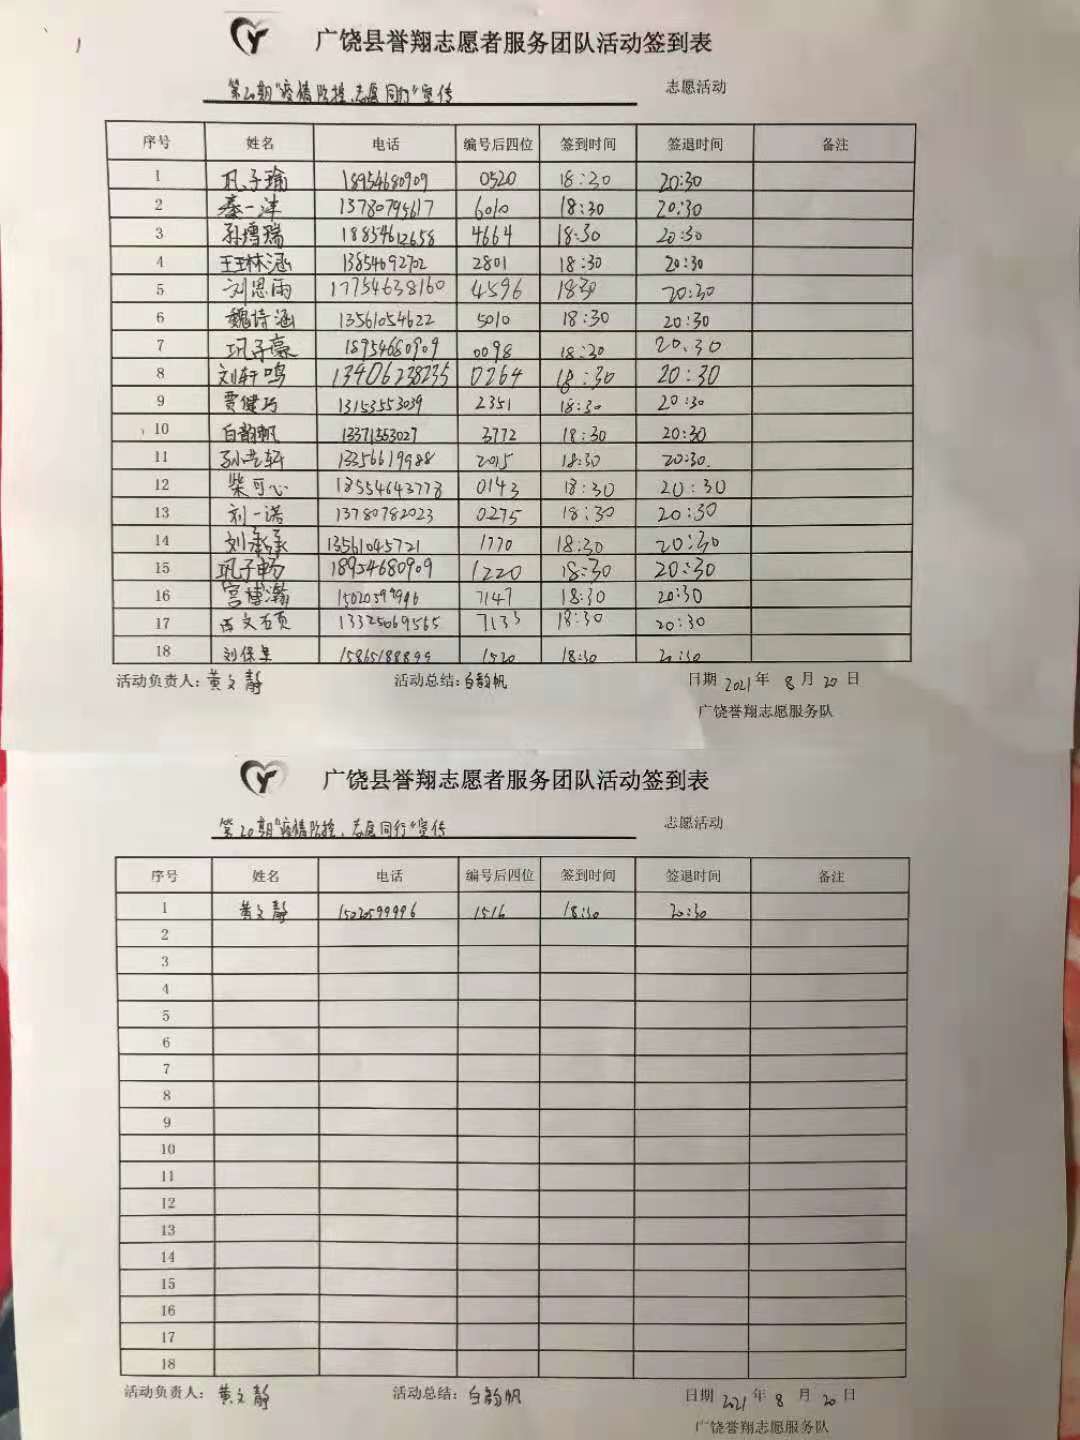 广饶县誉翔志愿者服务团队活动签到表
第20期"疫情防控、志愿同行"宣传 志愿活动
序号 姓名 电话 编号后四位 签到时间 签退时间 备注
1 巩子瑜 18954680909 0520 18:30 20:30
2 秦一沣 13780795617 6010 18:30 20:30
3 孙雪瑞 18854612658 4664 18:30 20:30
4 王林涵 13854692702 2801 18:30 20:30
5 刘思雨 17754638160 4596 18:30 20:30
6 魏诗涵 13561054622 5010 18:30 20:30
7 巩子豪 18954680909 0098 18:30 20:30
8 刘轩鸣 13406238235 0264 18:30 20:30
9 贾健巧 13153553039 2351 18:30 20:30
10 白韵帆 13371553027 3772 18:30 20:30
11 孙艺轩 13356619988 2015 18:30 20:30.
12 柴可心 18554643778 0143 18:30 20:30
13 刘一诺 13780782023 0275 18:30 20:30
14 刘承承 13561045721 1770 18:30 20:30
15 巩子畅 18954680909 1220 18:30 20:30
16 宫博瀚 15020599996 7147 18:30 20:30
17 13325069565 7133 18:30 20:30
18 刘保 15865188899 1520 18:30 20:30
活动负责人: 黄文静 活动总结: 白韵帆 日期 2021 年 8 月 20 日
广饶誉翔志愿服务队
广饶县誉翔志愿者服务团队活动签到表
第20期"疫情防控、志愿同行"宣传 志愿活动
序号 姓名 电话 编号后四位 签到时间 签退时间 备注
1 黄文静 15020599996 1516 18:30 20:30
2
3
4
5
6
7
8
9
10
11
12
13
14
15
16
17
18
活动负责人: 黄文静 活动总结: 白韵帆 日期 2021 年 8 月 20 日
广饶誉翔志愿服务队